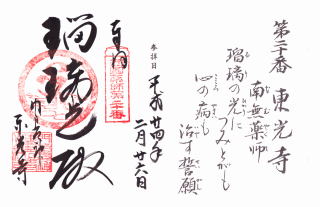 第二十番 東光寺
南無薬師
瑠璃の光に
つみとがも
心の病も
治す誓願
参拝日
平成廿四年
二月廿六日
奉拝
瑠璃光殿
東光寺